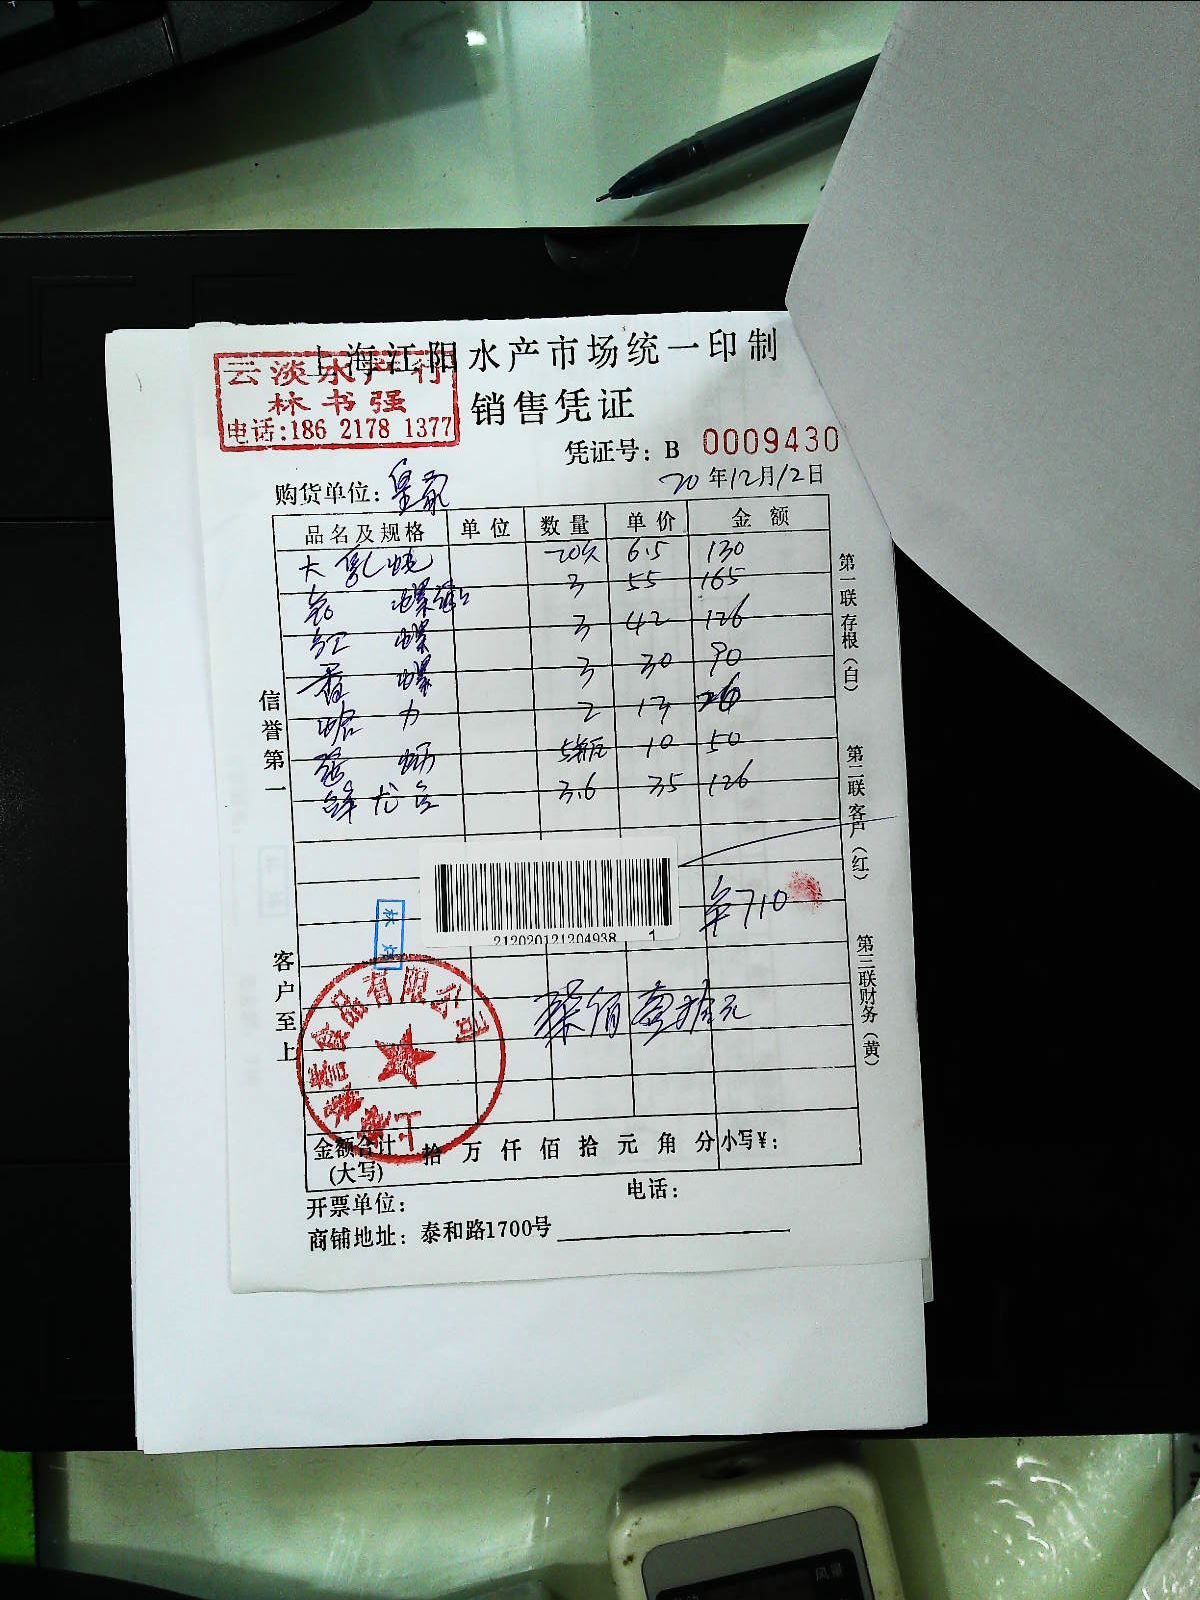 上海江阳水产市场统一印制
云淡水产行
林书强
电话:186 2178 1377
销售凭证
凭证号: B 0009430
购货单位: 皇家
20年12月12日
品名及规格 单位 数量 单价 金额
大 20只 6.5 130
螺 3 55 165
红 螺 3 42 126
香 螺 3 30 90
2 13 26
5 10 50
鲜 3.6 35 126
¥710
212020121204938 1
柒佰壹拾元
信誉第一
客户至上
第一联存根(白)
第二联客户(红)
第三联财务(黄)
食品有限公司
金额合计(大写) 拾 万 仟 佰 拾 元 角 分 小写¥:
开票单位: 电话:
商铺地址: 泰和路1700号
风量